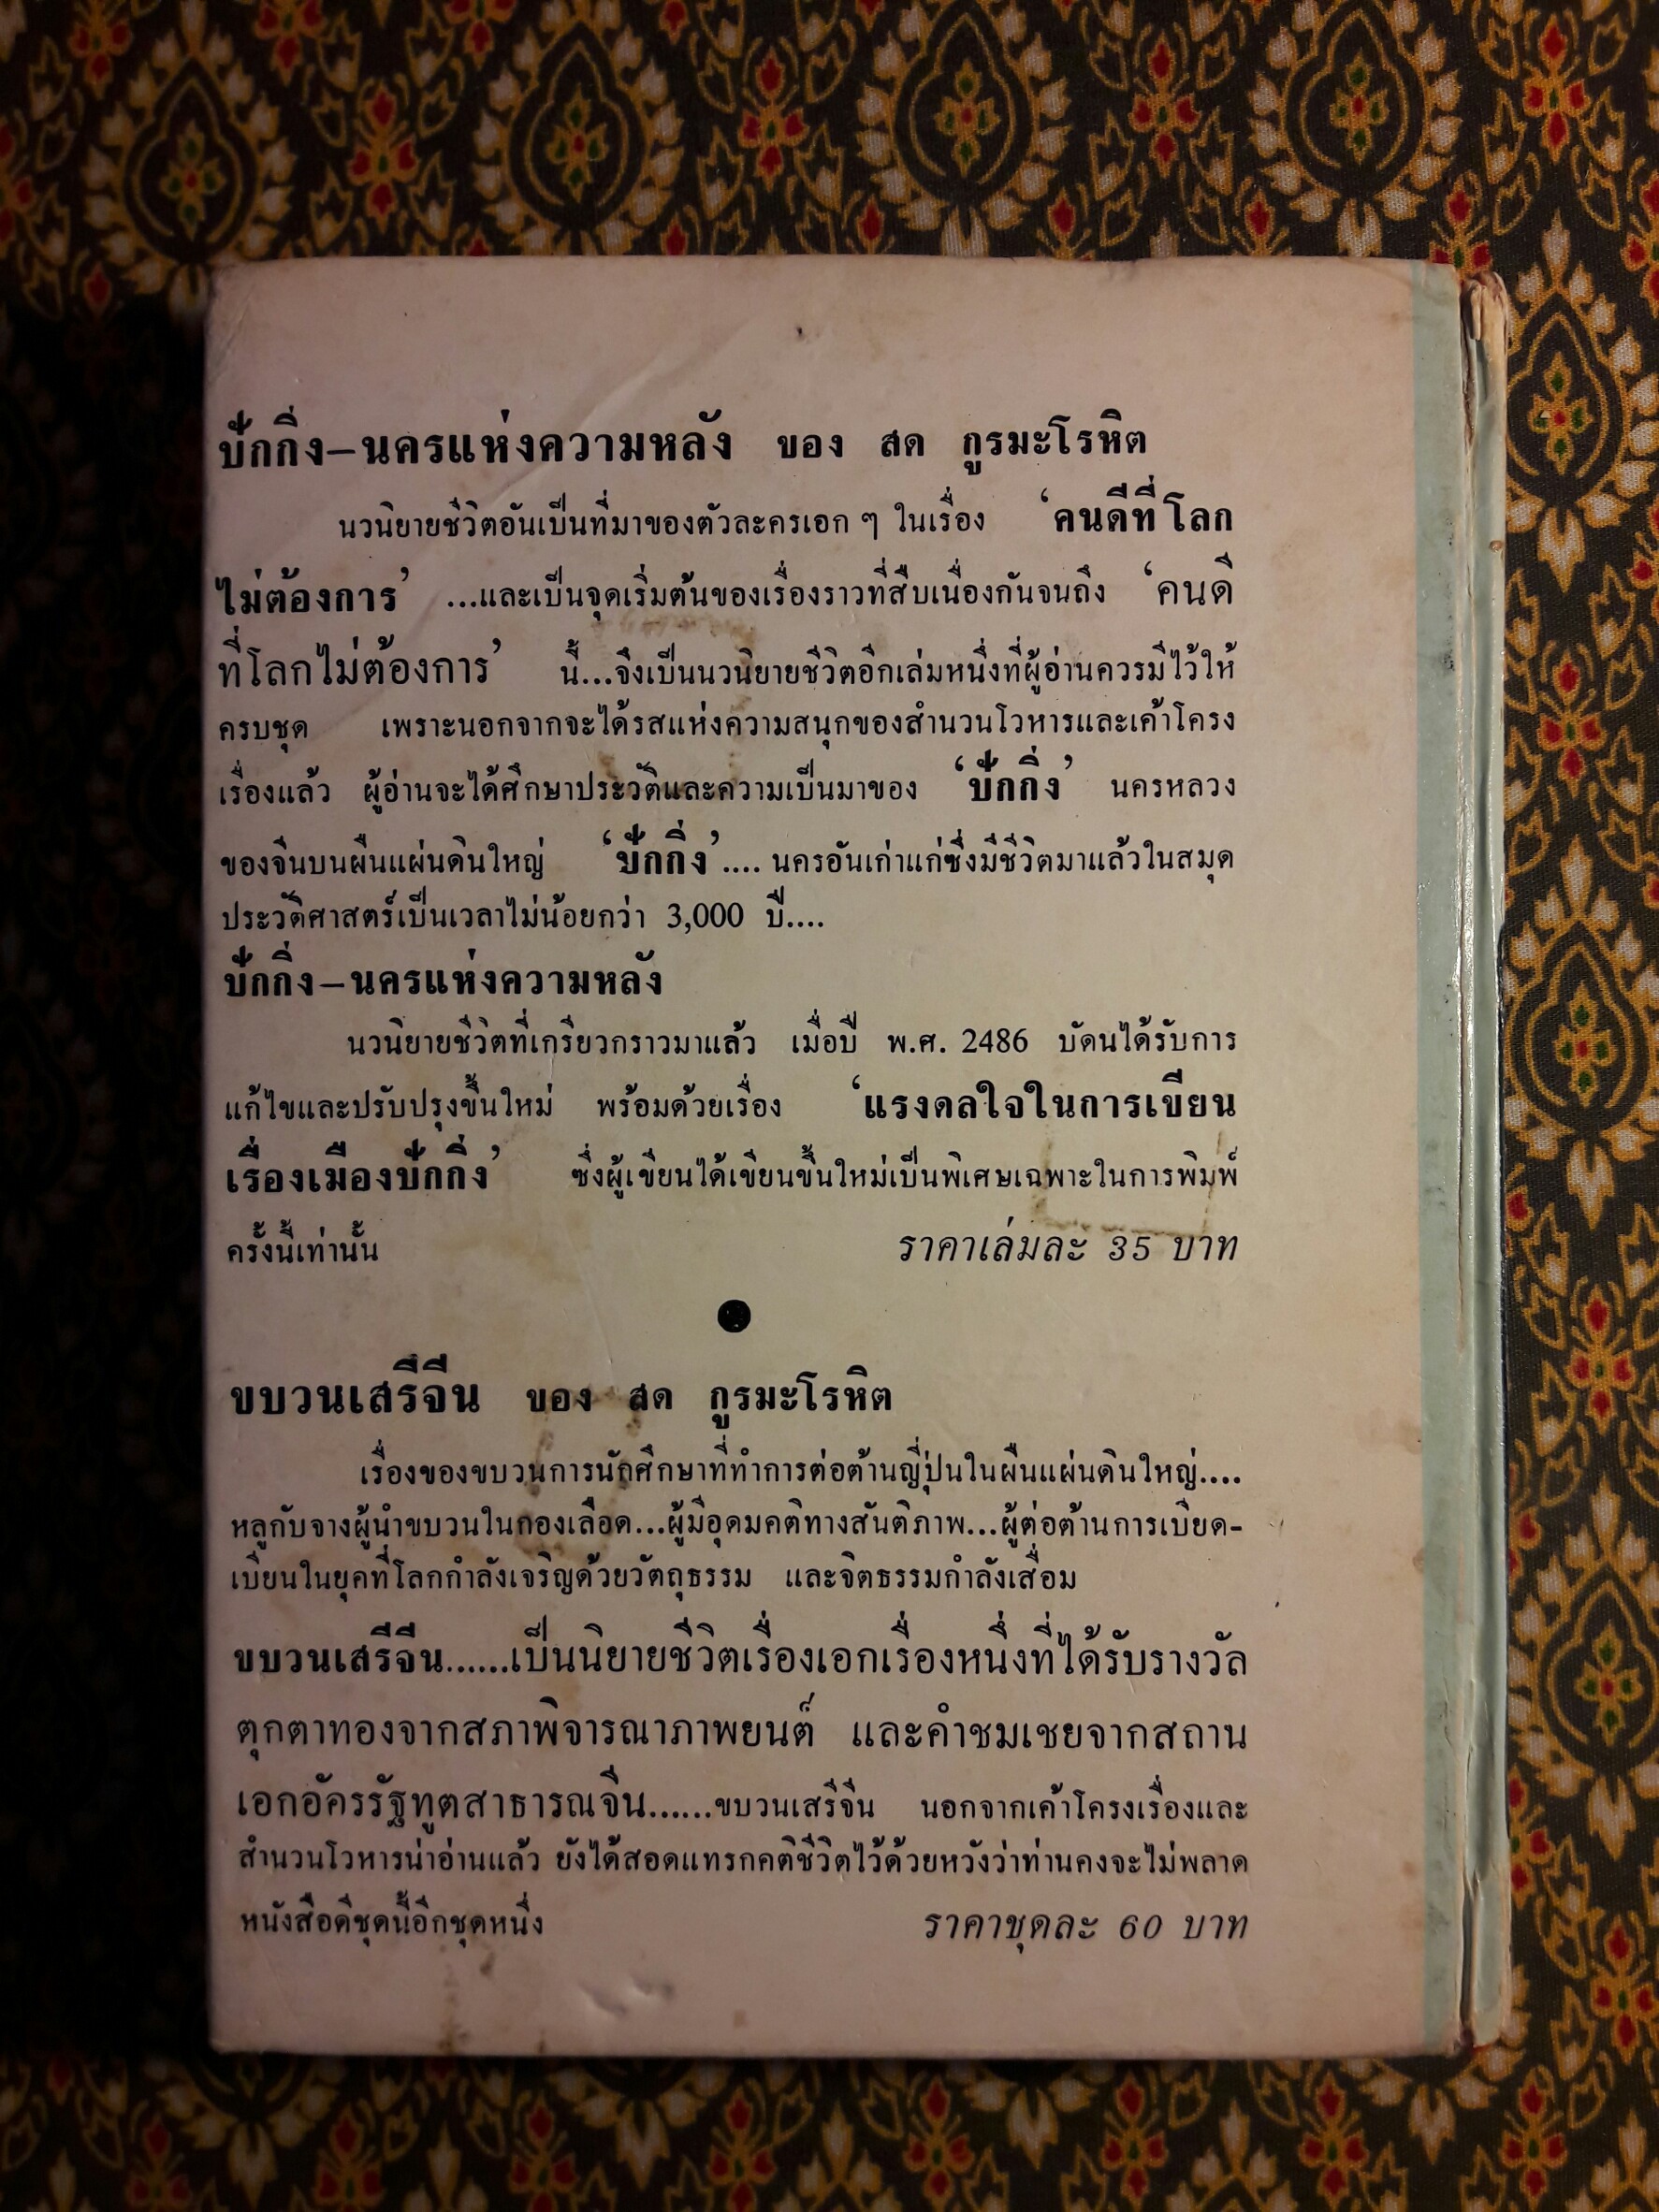 ปักกิ่ง–นครแห่งความหลัง ของ สด กูรมะโรหิต
นวนิยายชีวิตอันเป็นที่มาของตัวละครเอก ๆ ในเรื่อง ‘คนดีที่โลก
ไม่ต้องการ’ ...และเป็นจุดเริ่มต้นของเรื่องราวที่สืบเนื่องกันจนถึง ‘คนดี
ที่โลกไม่ต้องการ’ นี้...จึงเป็นนวนิยายชีวิตอีกเล่มหนึ่งที่ผู้อ่านควรมีไว้ให้
ครบชุด เพราะนอกจากจะได้รสแห่งความสนุกของสำนวนโวหารและเค้าโครง
เรื่องแล้ว ผู้อ่านจะได้ศึกษาประวัติและความเป็นมาของ ‘ปักกิ่ง’ นครหลวง
ของจีนบนผืนแผ่นดินใหญ่ ‘ปักกิ่ง’.... นครอันเก่าแก่ซึ่งมีชีวิตมาแล้วในสมุด
ประวัติศาสตร์เป็นเวลาไม่น้อยกว่า 3,000 ปี....
ปักกิ่ง–นครแห่งความหลัง
นวนิยายชีวิตที่เกรียวกราวมาแล้ว เมื่อปี พ.ศ. 2486 บัดนได้รับการ
แก้ไขและปรับปรุงขึ้นใหม่ พร้อมด้วยเรื่อง ‘แรงดลใจในการเขียน
เรื่องเมืองปักกิ่ง’ ซึ่งผู้เขียนได้เขียนขึ้นใหม่เป็นพิเศษเฉพาะในการพิมพ์
ครั้งนี้เท่านั้น ราคาเล่มละ 35 บาท
●
ขบวนเสรีจีน ของ สด กูรมะโรหิต
เรื่องของขบวนการนักศึกษาที่ทำการต่อต้านญี่ปุ่นในผืนแผ่นดินใหญ่....
หลูกับจางผู้นำขบวนในกองเลือด...ผู้มีอุดมคติทางสันติภาพ...ผู้ต่อต้านการเบียด-
เบียนในยุคที่โลกกำลังเจริญด้วยวัตถุธรรม และจิตธรรมกำลังเสื่อม
ขบวนเสรีจีน......เป็นนิยายชีวิตเรื่องเอกเรื่องหนึ่งที่ได้รับรางวัล
ตุกตาทองจากสภาพิจารณาภาพยนต์ และคำชมเชยจากสถาน
เอกอัครรัฐทูตสาธารณจีน......ขบวนเสรีจีน นอกจากเค้าโครงเรื่องและ
สำนวนโวหารน่าอ่านแล้ว ยังได้สอดแทรกคติชีวิตไว้ด้วยหวังว่าท่านคงจะไม่พลาด
หนังสือดีชุดนี้อีกชุดหนึ่ง ราคาชุดละ 60 บาท